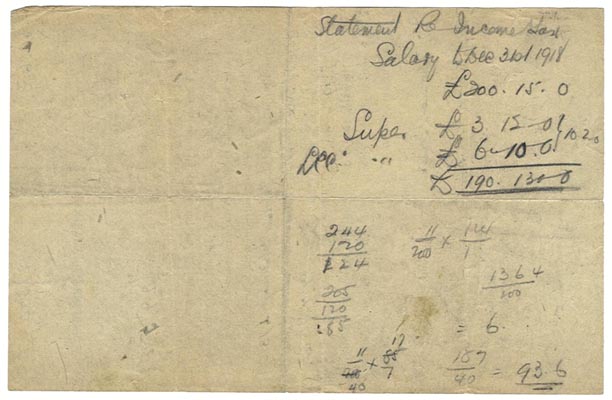 Statement Re Income Tax
Salary to Dec 31st 1918
£200. 15. 0
Super £ 3. 12-0
" £ 6-10.0 10 20
£ 190. 13-0
244
120
124
11/200 ×
1364/200
205
120
85
= 6.
11/40 × 17/1
187/40 = 93.6